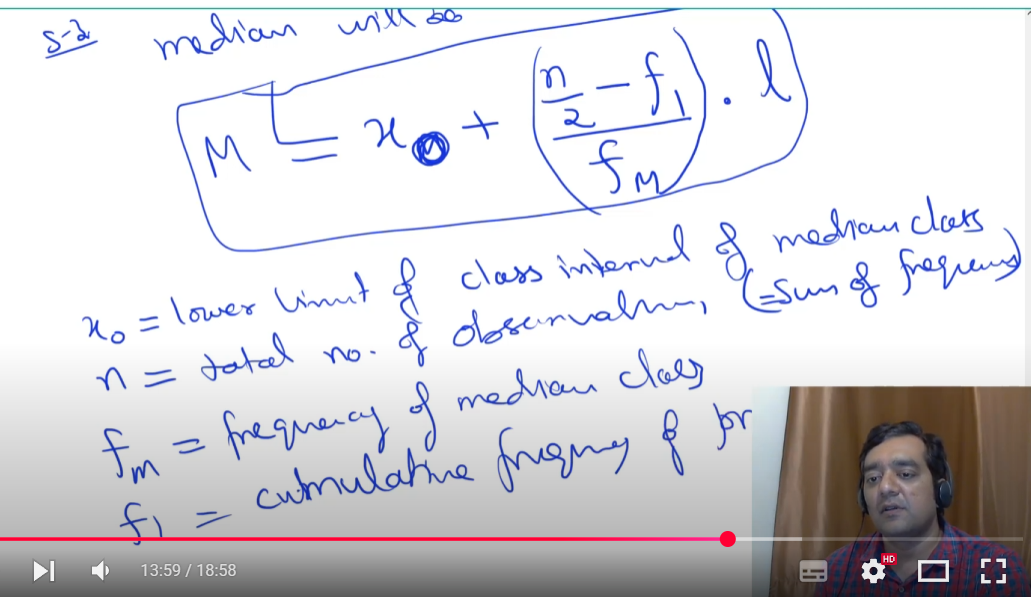 S-2 median will be
M = x₀ + ((n/2 − f₁)/f_M) . l
x₀ = lower limit of class interval of median class
n = total no. of observation, (=sum of frequency)
f_m = frequency of median class
f₁ = cumulative frequency of pr
13:59 / 18:58
HD